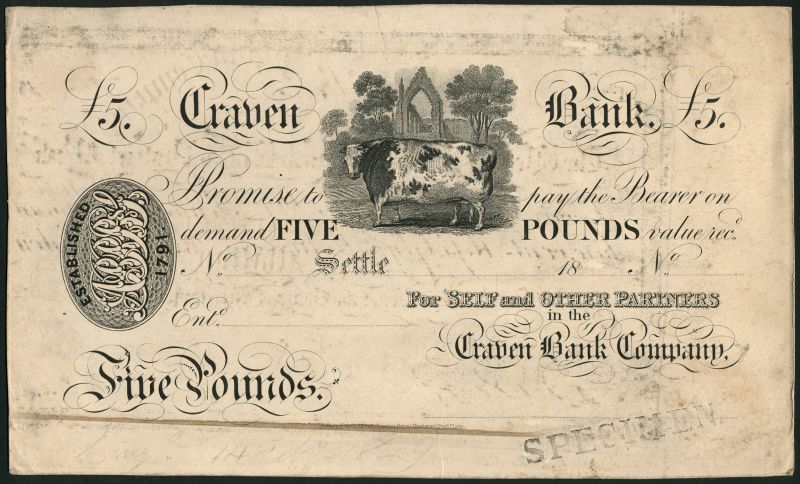 £5. Craven Bank. £5.
Promise to pay the Bearer on
demand FIVE POUNDS value recd.
No. Settle 18 No.
ESTABLISHED 1791
For SELF and OTHER PARTNERS
Entd. in the
Craven Bank Company,
Five Pounds.
SPECIMEN